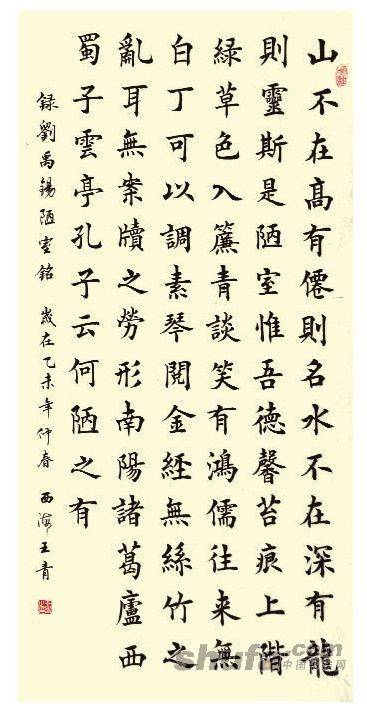 山不在高有僊則名水不在深有龍
則靈斯是陋室惟吾德馨苔痕上階
綠草色入簾青談笑有鴻儒往来無
白丁可以調素琴閱金經無絲竹之
亂耳無案牘之勞形南陽諸葛廬西
蜀子雲亭孔子云何陋之有
録劉禹錫陋室銘 歲在乙未年仲春 西海王青
shufa.com
中国书法网